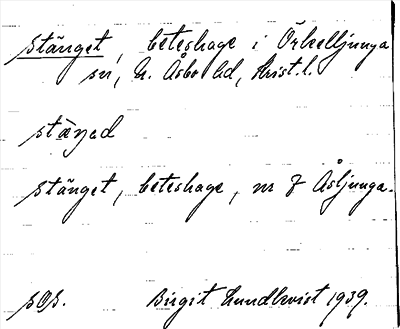 Stänget, beteshage i Örkelljunga
sn, N. Åsbo hd, Krist. l.
stäŋad
Stänget, beteshage, nr 7 Åsljunga.
Birgit Lundkvist 1939.